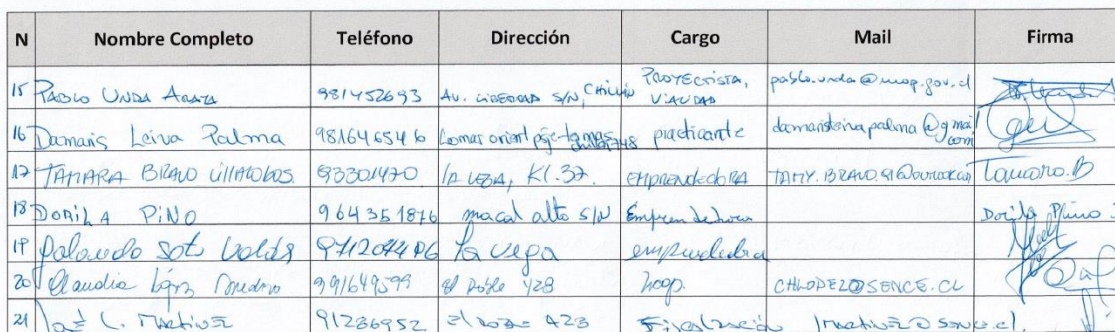 N Nombre Completo Teléfono Dirección Cargo Mail Firma
15 PABLO UNDA ARAYA 981452693 AV. LIBERTAD S/N, CHILLÁN PROYECTISTA, VIALIDAD pablo.unda@mop.gov.cl
16 Damaris Leiva Palma 981646546 Lomas orient practicante damarisleivapalma@gmail.com
17 TAMARA BRAVO VILLALOBOS. 93301470 LA VEGA, K1.37. EMPRENDEDORA TAMY.BRAVO.91@outlook.com Tamara.B
18 DORILA PINO 964351876 macal alto S/N Emprendedora Dorila Pino
19 soto 971207486 La vega emprendedora
20 Claudia 991649599 El Roble 428 CHLOPEZ@SENCE.CL
21 José L. Martínez 91286952 El Roble 428 Fiscalización